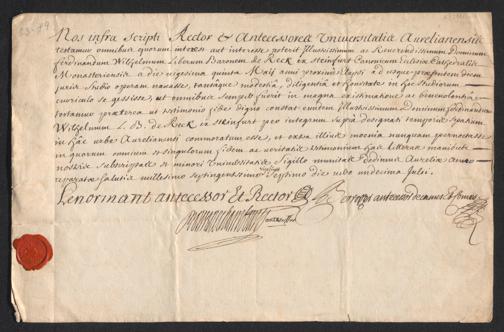 Nos infra Scripti Rector & Antecessores Universitatis Aurelianensis
testamur omnibus quorum interest aut interesse poterit Illustrissimum ac Reverendissimum Dominum
Ferdinandum Wilhelmum Liberum Baronem de Reck ex Steinfurt Canonicum Ecclesiæ Cathedralis
Monasteriensis a die vigesima quinta Maii anni proximi elapsi ad usque præsentem diem
juris studio operam navasse, tantaque modestia, diligentia et honestate in hoc studiorum
curriculo se gessisse, ut omnibus semper fuerit in magna existimatione ac benevolentia
testamur præterea ut testimonio fide digno constat eundem Illustrissimum Dominum Ferdinandum
Wilhelmum L. B. de Reck ex Steinfurt per integrum supra designati temporis spatium
in hac urbe Aurelianensi commoratum esse, et extra illius moenia nunquam pernoctasse
in quorum omnium et singulorum fidem ac veritatis testimonium has litteras manibus
nostris subscriptas et minori Universitatis Sigillo munitas dedimus Aureliæ anno
reparatæ salutis millesimo septingentesimo septimo die vero undecima Julii.
Lenormant antecessor Et Rector
antecessor decanus